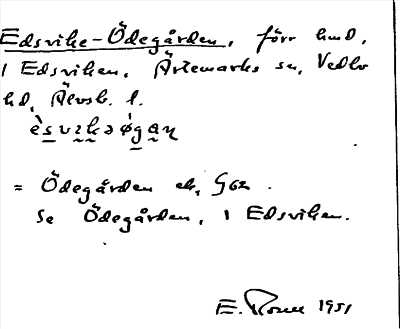 Edsvike-Ödegården, förr hmd,
i Edsviken, Ärtemarks sn, Vedbo
hd, Älvsb. l.
= Ödegården ek, G62.
Se Ödegården, i Edsviken.
E. 1951